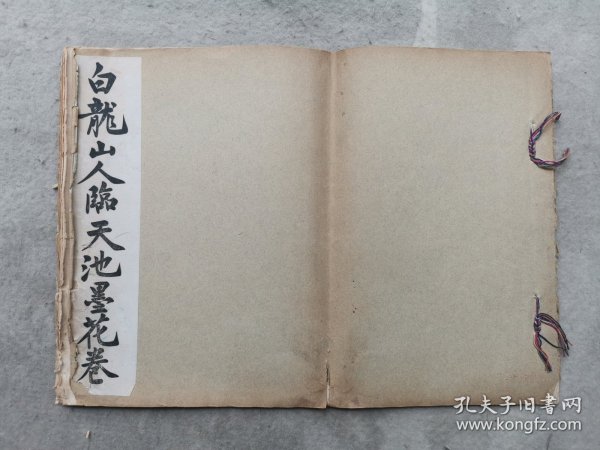 白龍山人臨天池墨花卷
孔夫子旧书网
www.kongfz.com